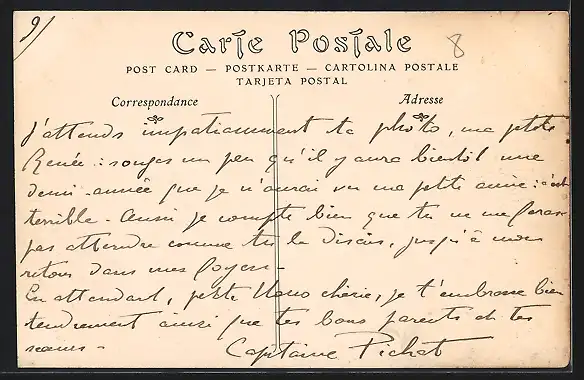 9)
8
Carte Postale
POST CARD — POSTKARTE — CARTOLINA POSTALE
TARJETA POSTAL
Correspondance
Adresse
J'attends impatiemment ta photo, ma ptite
Renée : songes un peu qu'il y aura bientôt une
demi-année que je n'aurai vu ma ptite amie : c'est
terrible - Aussi je compte bien que tu ne me feras
pas attendre comme tu le disais, jusqu'à mon
retour dans mes foyers -
En attendant, petite Nono chérie, je t'embrasse bien
tendrement ainsi que tes bons parents et tes
sœurs -
Capitaine Pichot